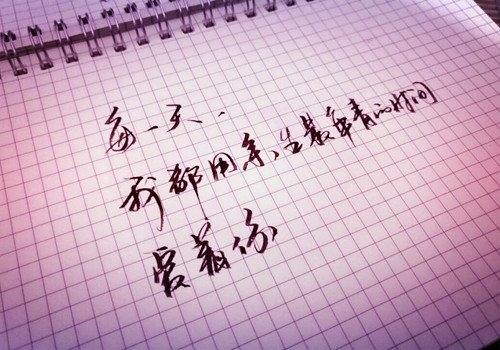 每一天.
我都用余生最年青的时间
爱着你